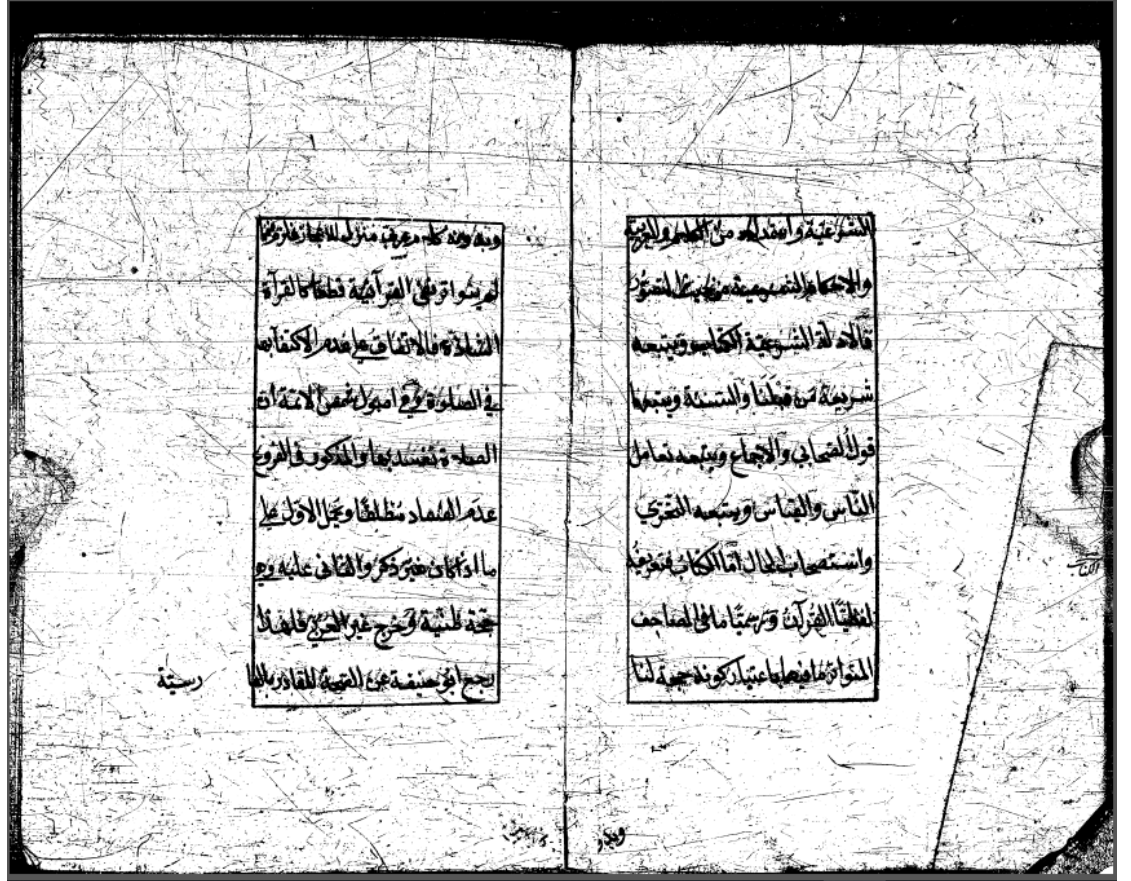 الشرعية وانقداد من العلم والعربية
والاحكام من حيث الثبوت
فالادلة الشرعية الكتاب ويتبعه
شريعة من قبلنا والسنة ويتبعها
قول الصحابي والاجماع ويتبعه تعامل
الناس والقياس ويتبعه التحري
واستصحاب الحال اما الكتاب فتعريفه
لفظيا القرآن ورسميا ما في المصاحف
المتواتر ما فيها باعتبار كونه حجة لنا
الكتاب
وبدو
كله منزله للاعجاز
لم يتواتر نفى القرآنية قطعا كالقرآة
الشاذة فالاتفاق على عدم الاكتفآ بها
في الصلوة وفي اصول شمس الائمة ان
الصلوة تفسد بها والمذكور في الفروع
عدم الفساد مطلقا وحمل الاول على
ما اذا كان غير ذكر والثاني عليه وهو
حجة ظنية وخرج غير العربي فلهذا
رجع ابو حنيفة عن القادر بالفا
رسية